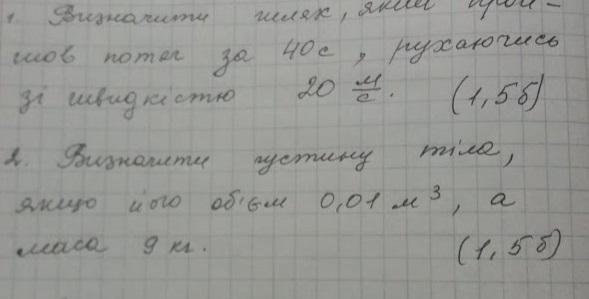 1. Визначити шлях, який прой-
шов потяг за 40 с, рухаючись
зі швидкістю 20 м/с. (1,5 б)
2. Визначити густину тіла,
якщо його об'єм 0,01 м³, а
маса 9 кг. (1,5 б)